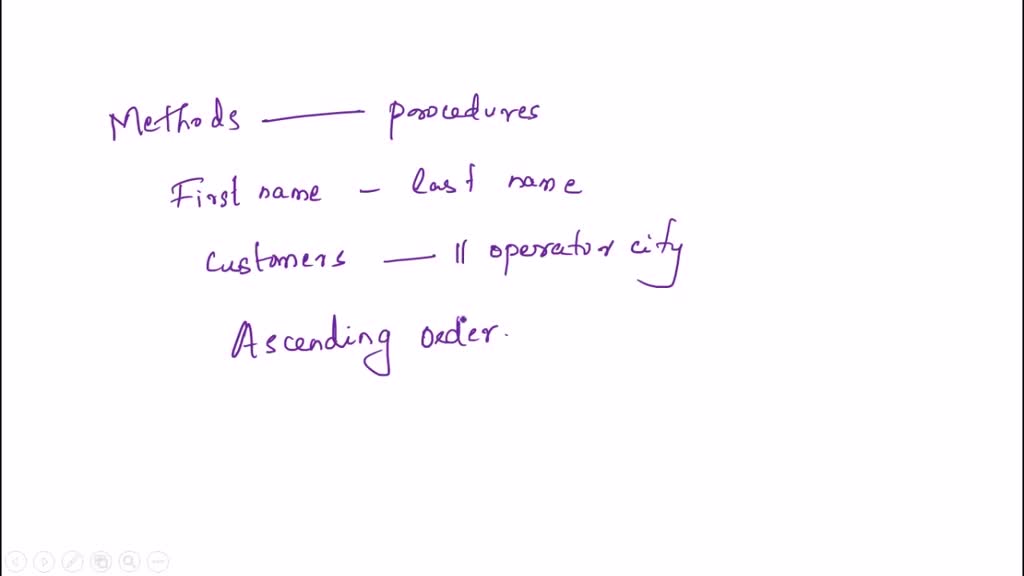 Methods — procedures
First name - last name
Customers — || operator city
Ascending order.